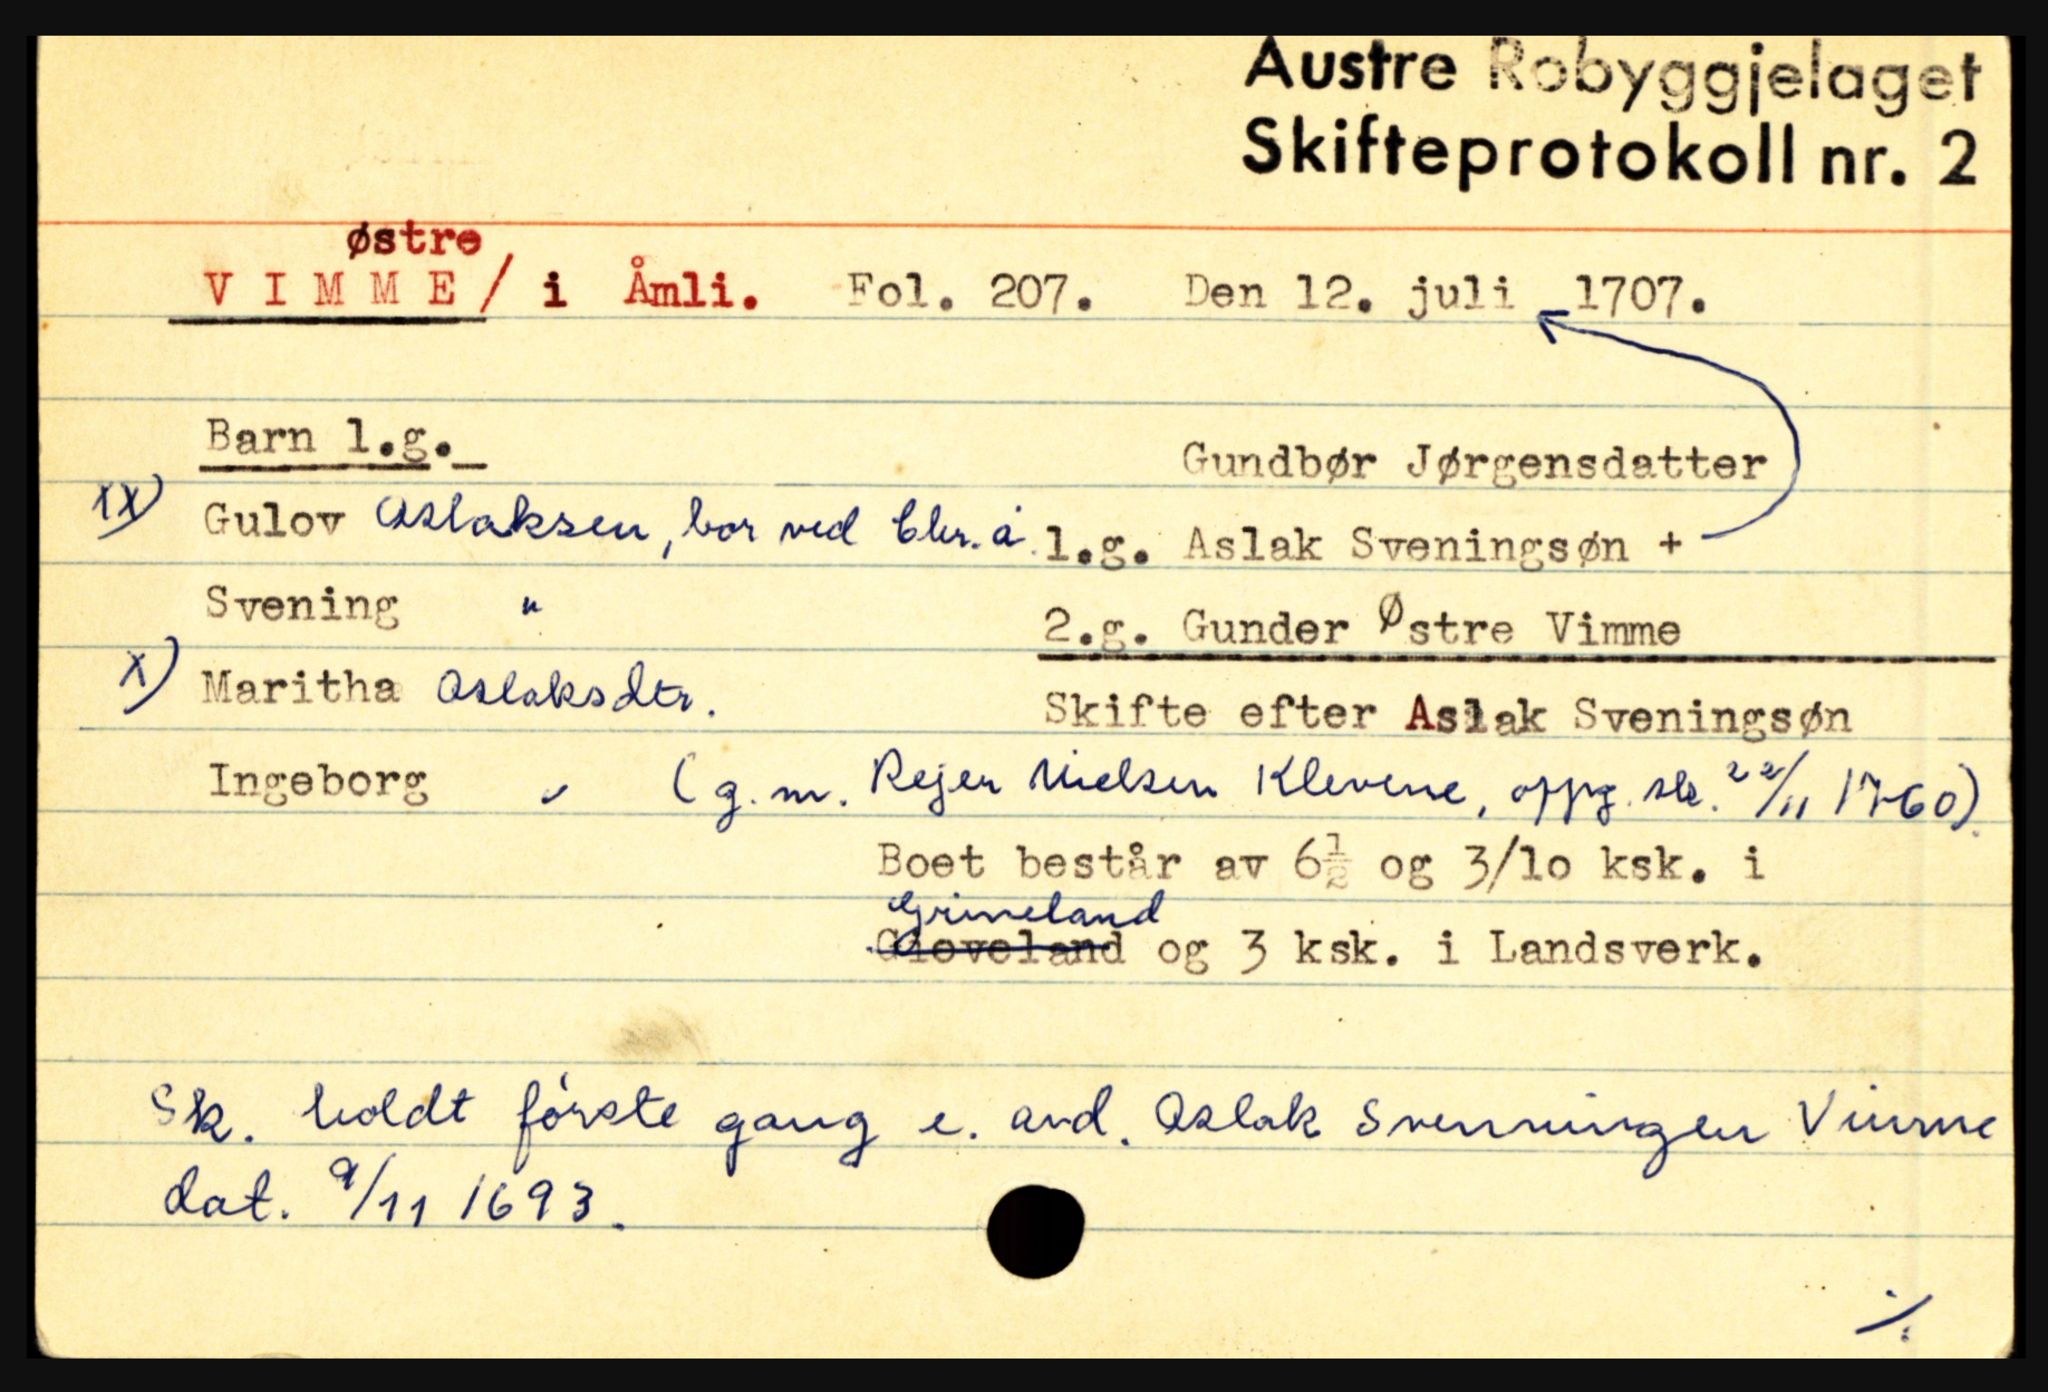 Austre Robyggjelaget
Skifteprotokoll nr. 2
østre
VIMME / i Åmli. Fol. 207. Den 12. juli 1707.
Barn 1.g.
Gundbør Jørgensdatter
xx) Gulov Aslaksen, bor ved Chr. å.
1.g. Aslak Sveningsøn +
Svening "
2.g. Gunder Østre Vimme
x) Maritha Aslaksdtr.
Skifte efter Aslak Sveningsøn
Ingeborg " (g.m. Rejer Nielsen Klevene, oppg. sk. 22/11 1760).
Boet består av 6½ og 3/10 ksk. i
Grimeland
Gloveland og 3 ksk. i Landsverk.
Sk. holdt første gang e. avd. Aslak Svenningen Vimme
dat. 9/11 1693.
./.